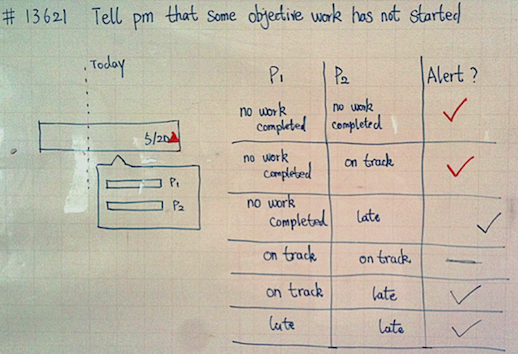 # 13621 Tell pm that some objective work has not started
Today
5/20
P1
P2
P1 P2 Alert ?
no work completed no work completed ✓
no work completed on track ✓
no work completed late ✓
on track on track —
on track late ✓
late late ✓